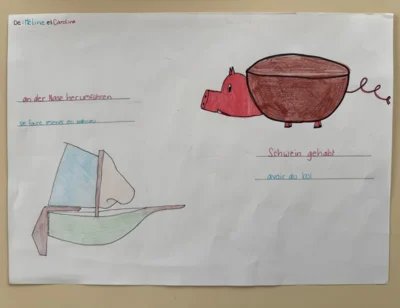 De Méline et
an der Nase herumführen
se faire mener en bateau
Schwein gehabt
avoir du bol